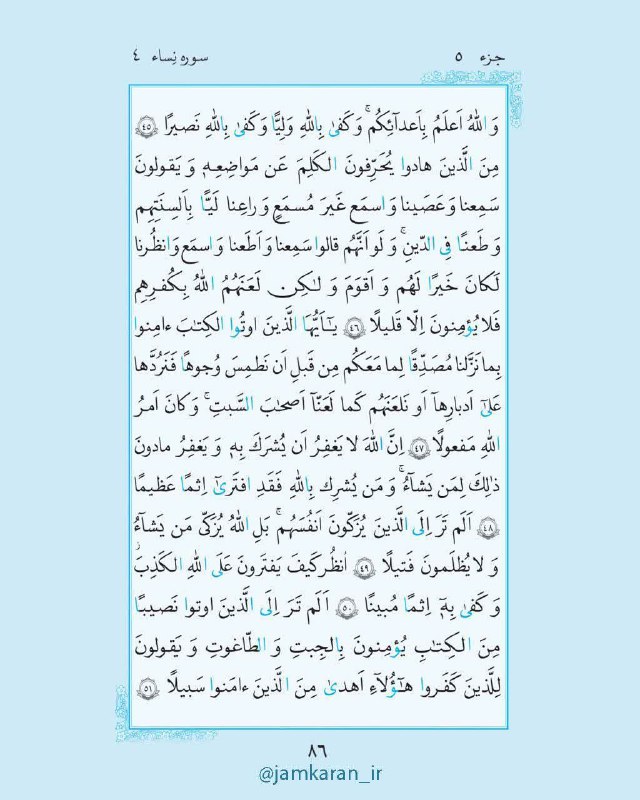 جزء ٥
سوره نِساء ٤
وَ اللهُ اَعلَمُ بِاَعدآئِكُم ۚ وَ كَفىٰ بِاللهِ وَلِيًّا وَ كَفىٰ بِاللهِ نَصيرًا ﴿٤٥﴾
مِنَ الَّذينَ هادوا يُحَرِّفونَ الكَلِمَ عَن مَواضِعِهٖ وَ يَقولونَ
سَمِعنا وَ عَصَينا وَ اسمَع غَيرَ مُسمَعٍ وَ راعِنا لَيًّا بِاَلسِنَتِهِم
وَ طَعنًا فِى الدّينِ ۚ وَ لَو اَنَّهُم قالوا سَمِعنا وَ اَطَعنا وَ اسمَع وَ انظُرنا
لَكانَ خَيرًا لَهُم وَ اَقوَمَ وَ لٰكِن لَعَنَهُمُ اللهُ بِكُفرِهِم
فَلا يُؤمِنونَ اِلّا قَليلًا ﴿٤٦﴾ يٰٓاَيُّهَا الَّذينَ اوتُوا الكِتٰبَ ءامِنوا
بِما نَزَّلنا مُصَدِّقًا لِما مَعَكُم مِن قَبلِ اَن نَطمِسَ وُجوهًا فَنَرُدَّها
عَلىٰٓ اَدبارِهآ اَو نَلعَنَهُم كَما لَعَنّآ اَصحٰبَ السَّبتِ ۚ وَ كانَ اَمرُ
اللهِ مَفعولًا ﴿٤٧﴾ اِنَّ اللهَ لا يَغفِرُ اَن يُشرَكَ بِهٖ وَ يَغفِرُ مادونَ
ذٰلِكَ لِمَن يَشآءُ ۚ وَ مَن يُشرِك بِاللهِ فَقَدِ افتَرىٰٓ اِثمًا عَظيمًا
﴿٤٨﴾ اَلَم تَرَ اِلَى الَّذينَ يُزَكّونَ اَنفُسَهُم ۚ بَلِ اللهُ يُزَكّى مَن يَشآءُ
وَ لا يُظلَمونَ فَتيلًا ﴿٤٩﴾ اُنظُر كَيفَ يَفتَرونَ عَلَى اللهِ الكَذِبَ ۖ
وَ كَفىٰ بِهٖٓ اِثمًا مُبينًا ﴿٥٠﴾ اَلَم تَرَ اِلَى الَّذينَ اوتوا نَصيبًا
مِنَ الكِتٰبِ يُؤمِنونَ بِالجِبتِ وَ الطّاغوتِ وَ يَقولونَ
لِلَّذينَ كَفَروا هٰٓؤُلآءِ اَهدىٰ مِنَ الَّذينَ ءامَنوا سَبيلًا ﴿٥١﴾
٨٦
@jamkaran_ir